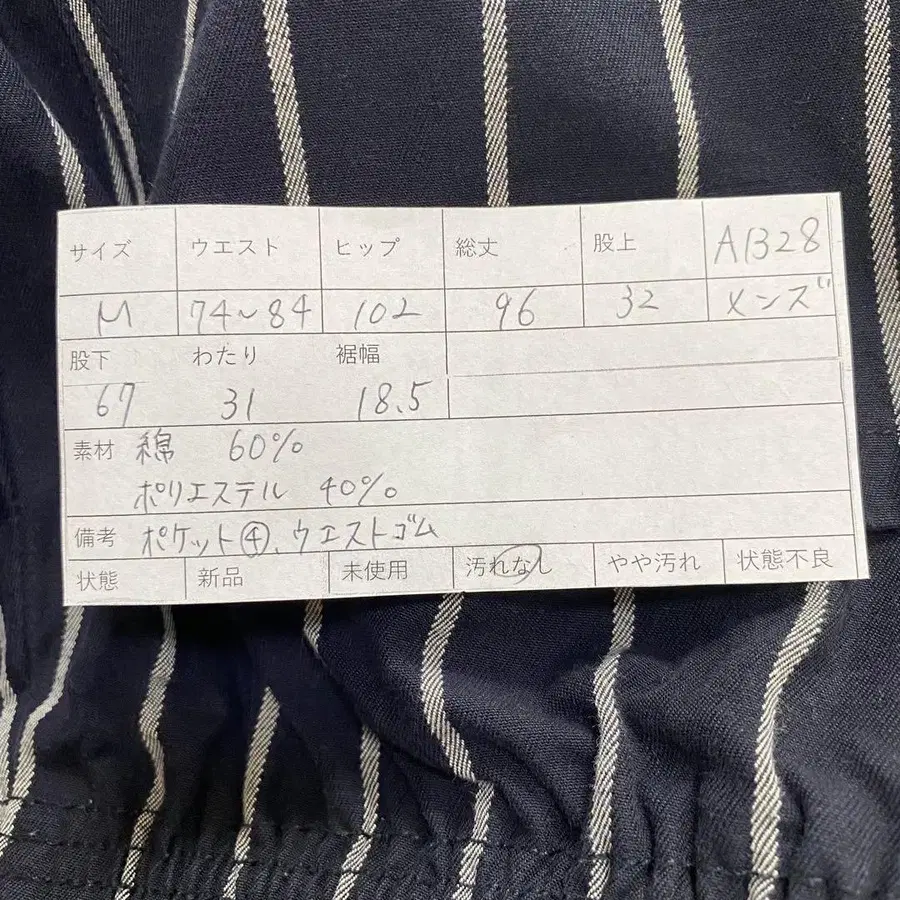 サイズ ウエスト ヒップ 総丈 股上 AB328
M 74~84 102 96 32 メンズ
股下 わたり 裾幅
67 31 18.5
素材 綿 60%
ポリエステル 40%
備考 ポケット④、ウエストゴム
状態 新品 未使用 汚れなし やや汚れ 状態不良